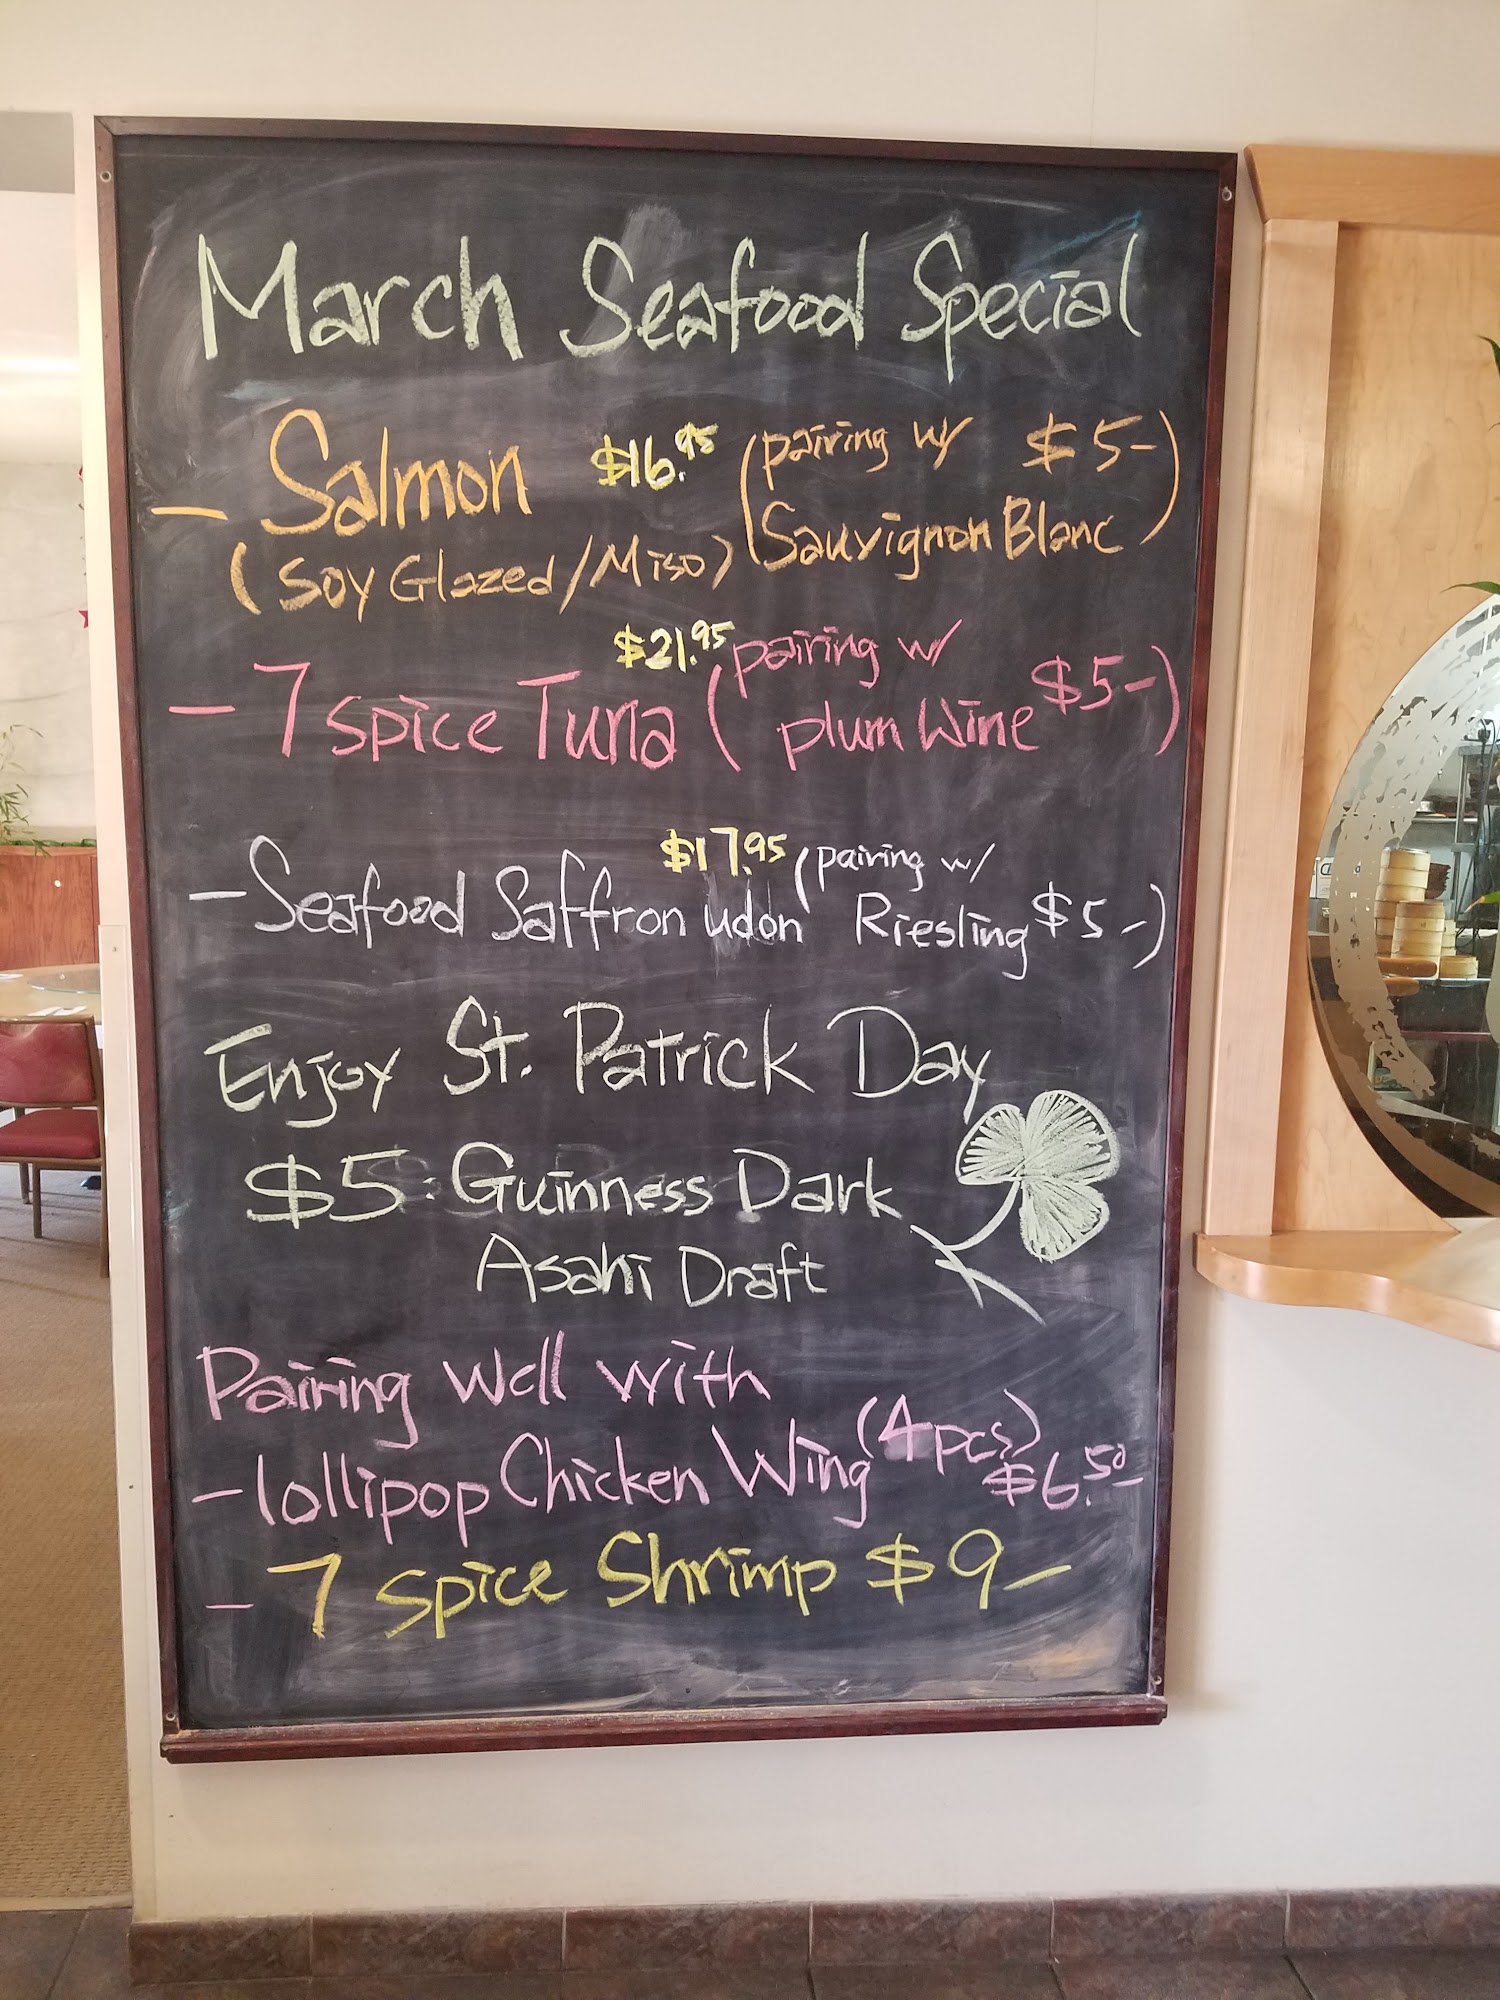 March Seafood Special
- Salmon $16.95 (pairing w/ $5-
(Soy Glazed/Miso) Sauvignon Blanc)
$21.95 (pairing w/
- 7 spice Tuna plum Wine $5-)
$17.95 (pairing w/
- Seafood Saffron udon Riesling $5-)
Enjoy St. Patrick Day
$5: Guinness Dark
Asahi Draft
Pairing Well with
- lollipop Chicken Wing (4pcs) $6.50-
- 7 spice Shrimp $9-